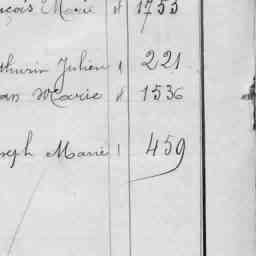 nçois Marie 8 1753
thurin Julien 1 221
an Marie 8 1536
seph Marie 1 459